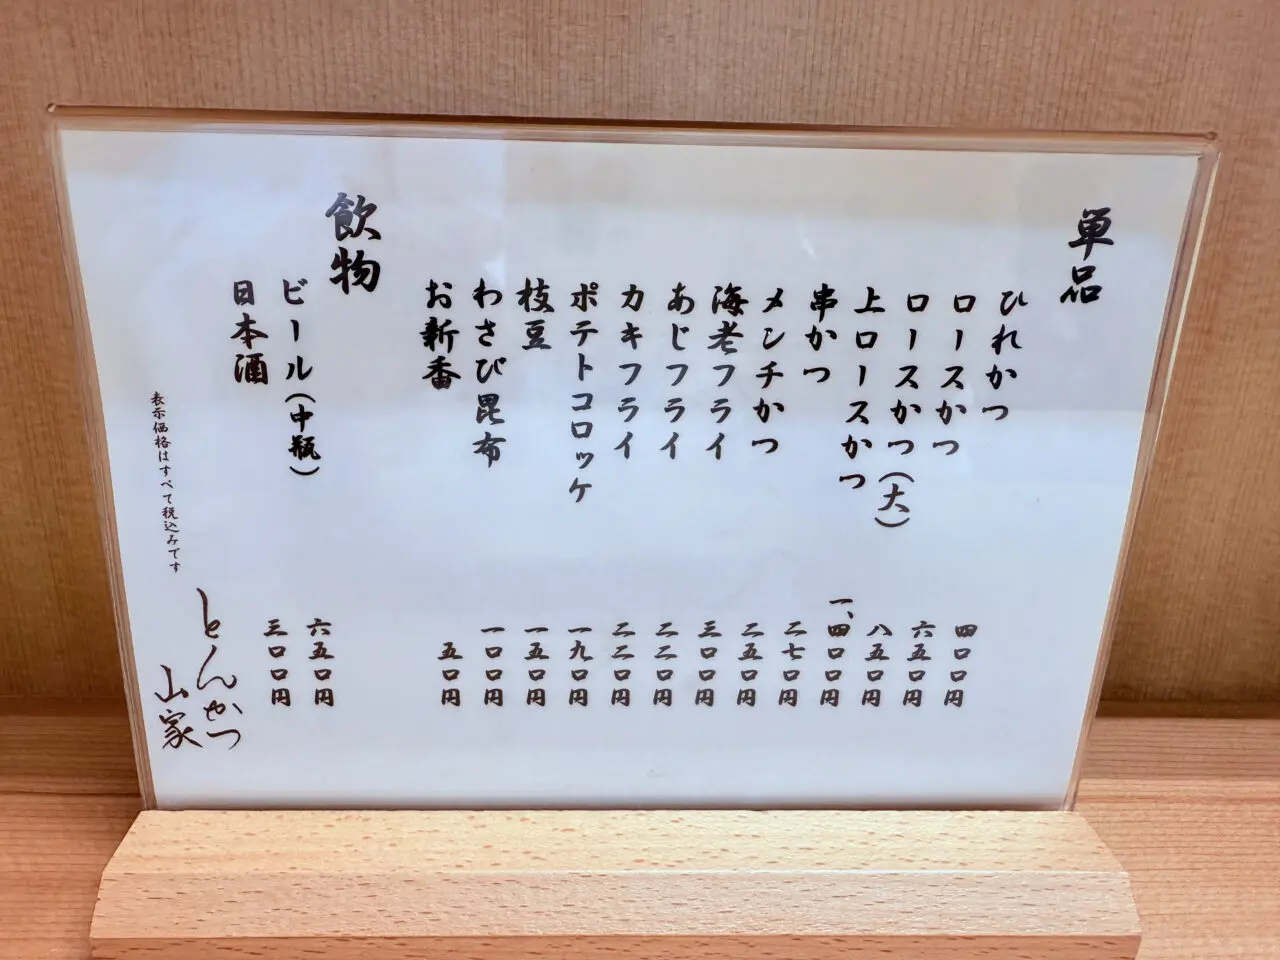 単品
ひれかつ 四〇〇円
ロースかつ 六五〇円
ロースかつ(大) 八五〇円
上ロースかつ 一、四〇〇円
串かつ 二七〇円
メンチかつ 二五〇円
海老フライ 三〇〇円
あじフライ 二二〇円
カキフライ 二二〇円
ポテトコロッケ 一九〇円
枝豆 一五〇円
わさび昆布 一〇〇円
お新香 五〇円
飲物
ビール(中瓶) 六五〇円
日本酒 三〇〇円
表示価格はすべて税込みです
とんかつ
山家